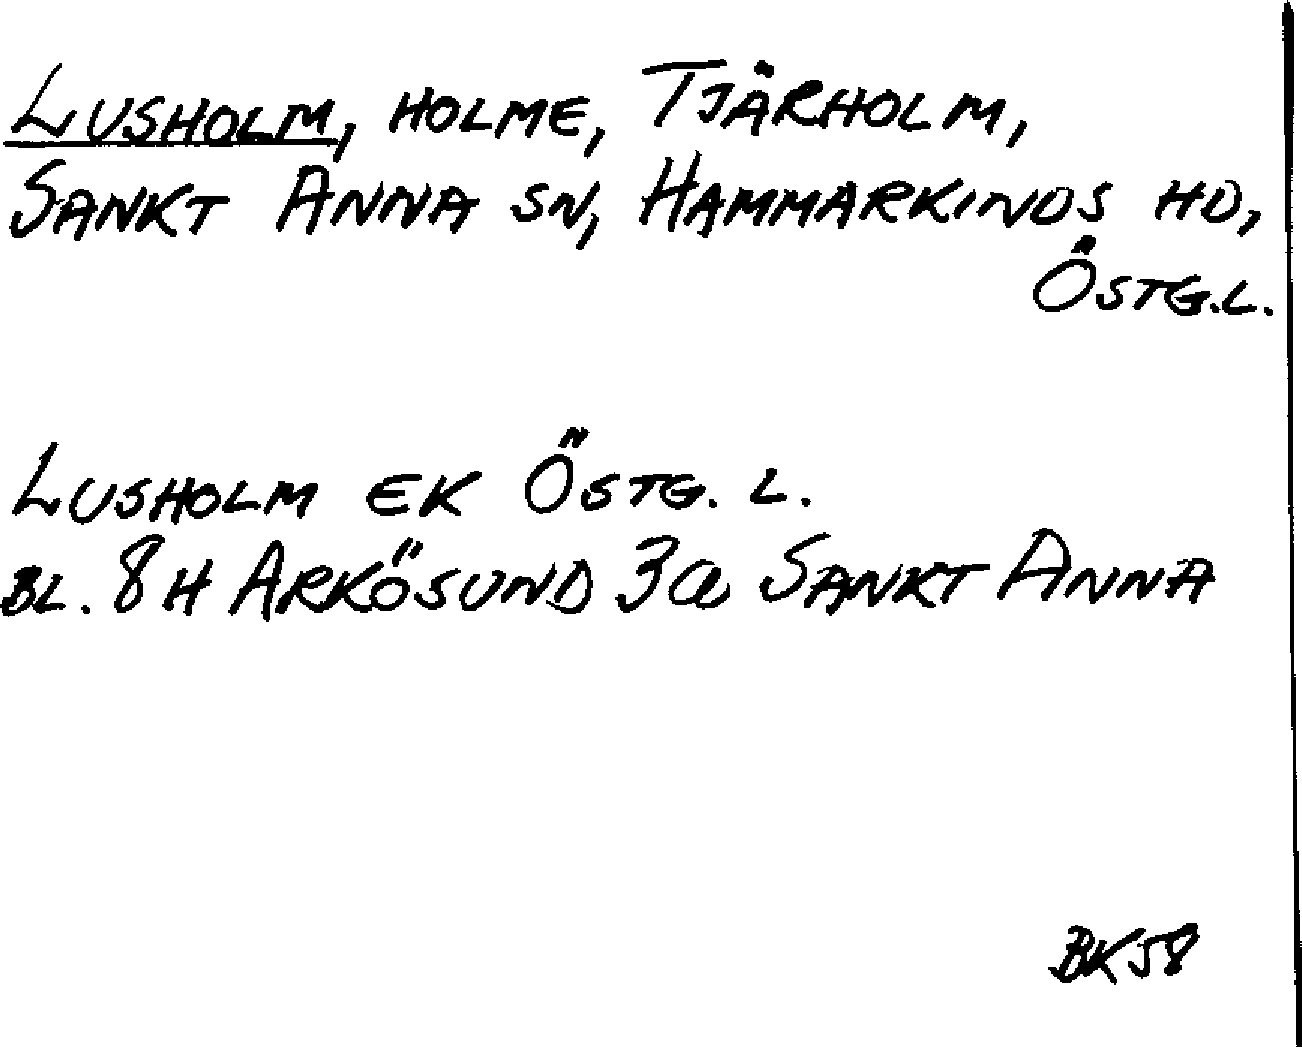 LUSHOLM, HOLME, TJÄRHOLM,
SANKT ANNA SN, HAMMARKINDS HD,
ÖSTG.L.
LUSHOLM EK ÖSTG. L.
BL. 8H ARKÖSUND 3a SANKT ANNA
BK58